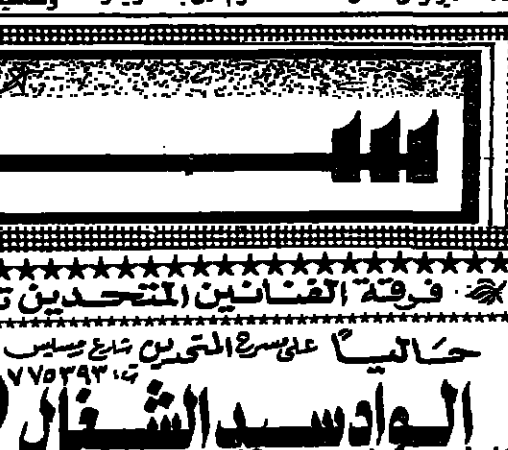 فرقة الفنانين المتحدين
حاليـًا على مسرح المتحدين شارع رمسيس
ت: ٧٧٥٣٩٣
الواد سيد الشغال